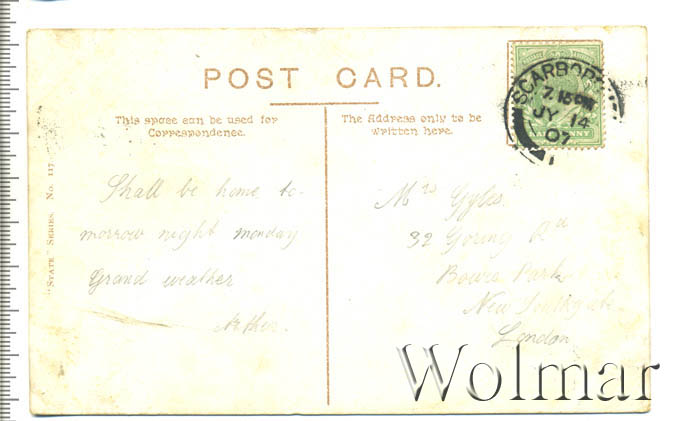 POST CARD.
This space can be used for
Correspondence.
The Address only to be
written here.
"STATE" SERIES. No. 117
SCARBORO
7.15 PM
JY 14
07
HALFPENNY
Shall be home to-
morrow night monday
Grand weather
Arthur.
Mrs Gyles.
32 Goring Rd
Bowes Park
New Southgate
London
Wolmar